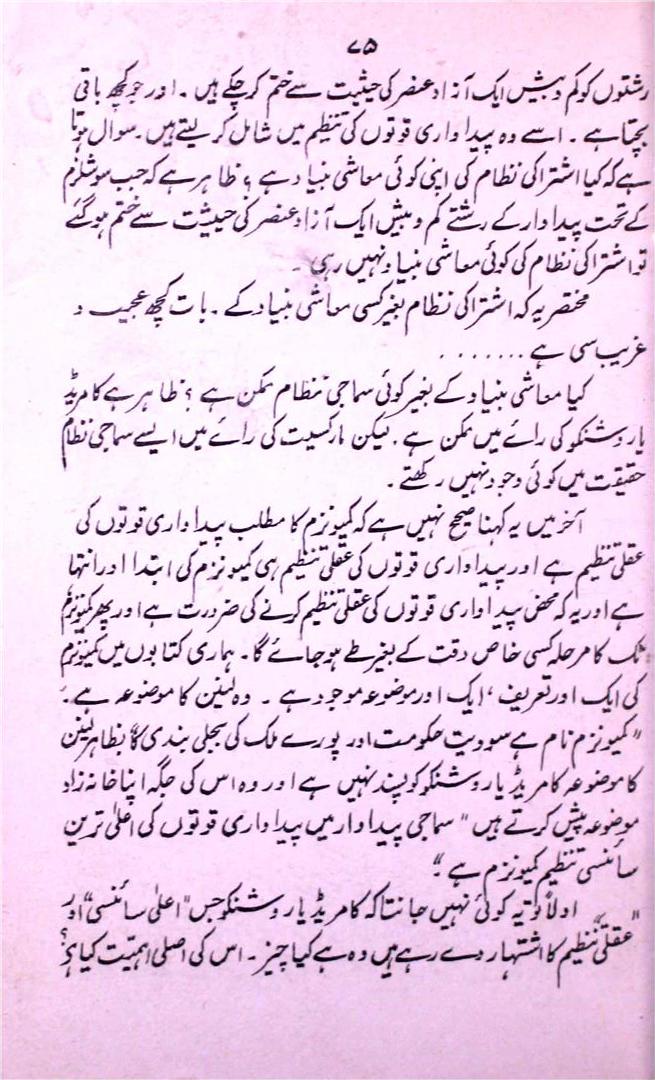 ۷۵
رشتوں کو کم و بیش ایک آزاد عنصر کی حیثیت سے ختم کر چکے ہیں ۔ اور جو کچھ باقی
بچتا ہے ۔ اسے وہ پیداواری قوتوں کی تنظیم میں شامل کر لیتے ہیں ۔ سوال ہوتا
ہے کہ کیا اشتراکی نظام کی اپنی کوئی معاشی بنیاد ہے ؟ ظاہر ہے کہ جب سوشلزم
کے تحت پیداوار کے رشتے کم و بیش ایک آزاد عنصر کی حیثیت سے ختم ہو گئے
تو اشتراکی نظام کی کوئی معاشی بنیاد نہیں رہی ۔
مختصر یہ کہ اشتراکی نظام بغیر کسی معاشی بنیاد کے ۔ بات کچھ عجیب و
غریب سی ہے . . . . . . .
کیا معاشی بنیاد کے بغیر کوئی سماجی نظام ممکن ہے ؟ ظاہر ہے کامریڈ
یاروشنکو کی رائے میں ممکن ہے ۔ لیکن مارکسیت کی رائے میں ایسے سماجی نظام
حقیقت میں کوئی وجود نہیں رکھتے ۔
آخر میں یہ کہنا صحیح نہیں ہے کہ کمیونزم کا مطلب پیداواری قوتوں کی
عقلی تنظیم ہے اور پیداواری قوتوں کی عقلی تنظیم ہی کمیونزم کی ابتدا اور انتہا
ہے اور یہ کہ محض پیداواری قوتوں کی عقلی تنظیم کرنے کی ضرورت ہے اور پھر کمیونزم
تک کا مرحلہ کسی خاص دقت کے بغیر طے ہو جائے گا ۔ ہماری کتابوں میں کمیونزم
کی ایک اور تعریف ، ایک اور موضوعہ موجود ہے ۔ وہ لینن کا موضوعہ ہے ۔
"کمیونزم نام ہے سوویت حکومت اور پورے ملک کی بجلی بندی کا" بظاہر لینن
کا موضوعہ کامریڈ یاروشنکو کو پسند نہیں ہے اور وہ اس کی جگہ اپنا خانہ زاد
موضوعہ پیش کرتے ہیں "سماجی پیداوار میں پیداواری قوتوں کی اعلیٰ ترین
سائنسی تنظیم کمیونزم ہے ۔"
اولاً تو یہ کوئی نہیں جانتا کہ کامریڈ یاروشنکو جس "اعلیٰ سائنسی" اور
"عقلی تنظیم" کا اشتہار دے رہے ہیں وہ ہے کیا چیز ۔ اس کی اصلی اہمیت کیا ہے ؟